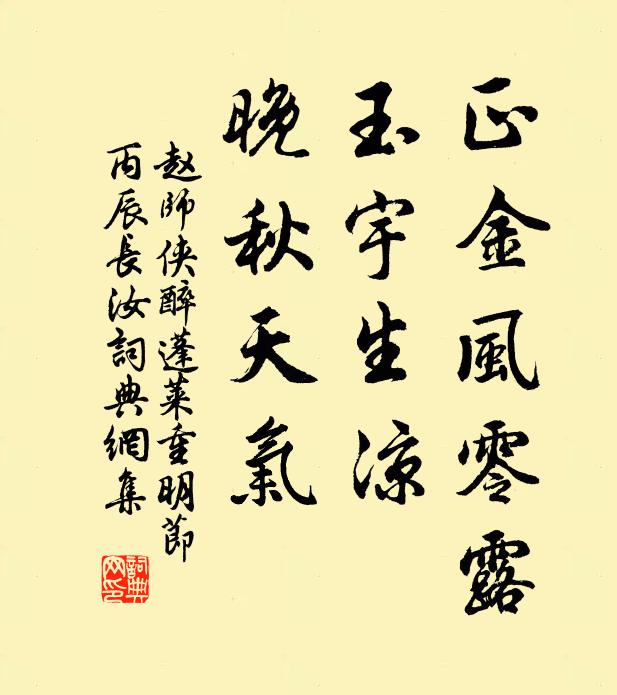 正金風零露
玉宇生涼
晚秋天氣
赵师侠醉蓬莱重明節
丙辰長汝詞典網集
詞典网印